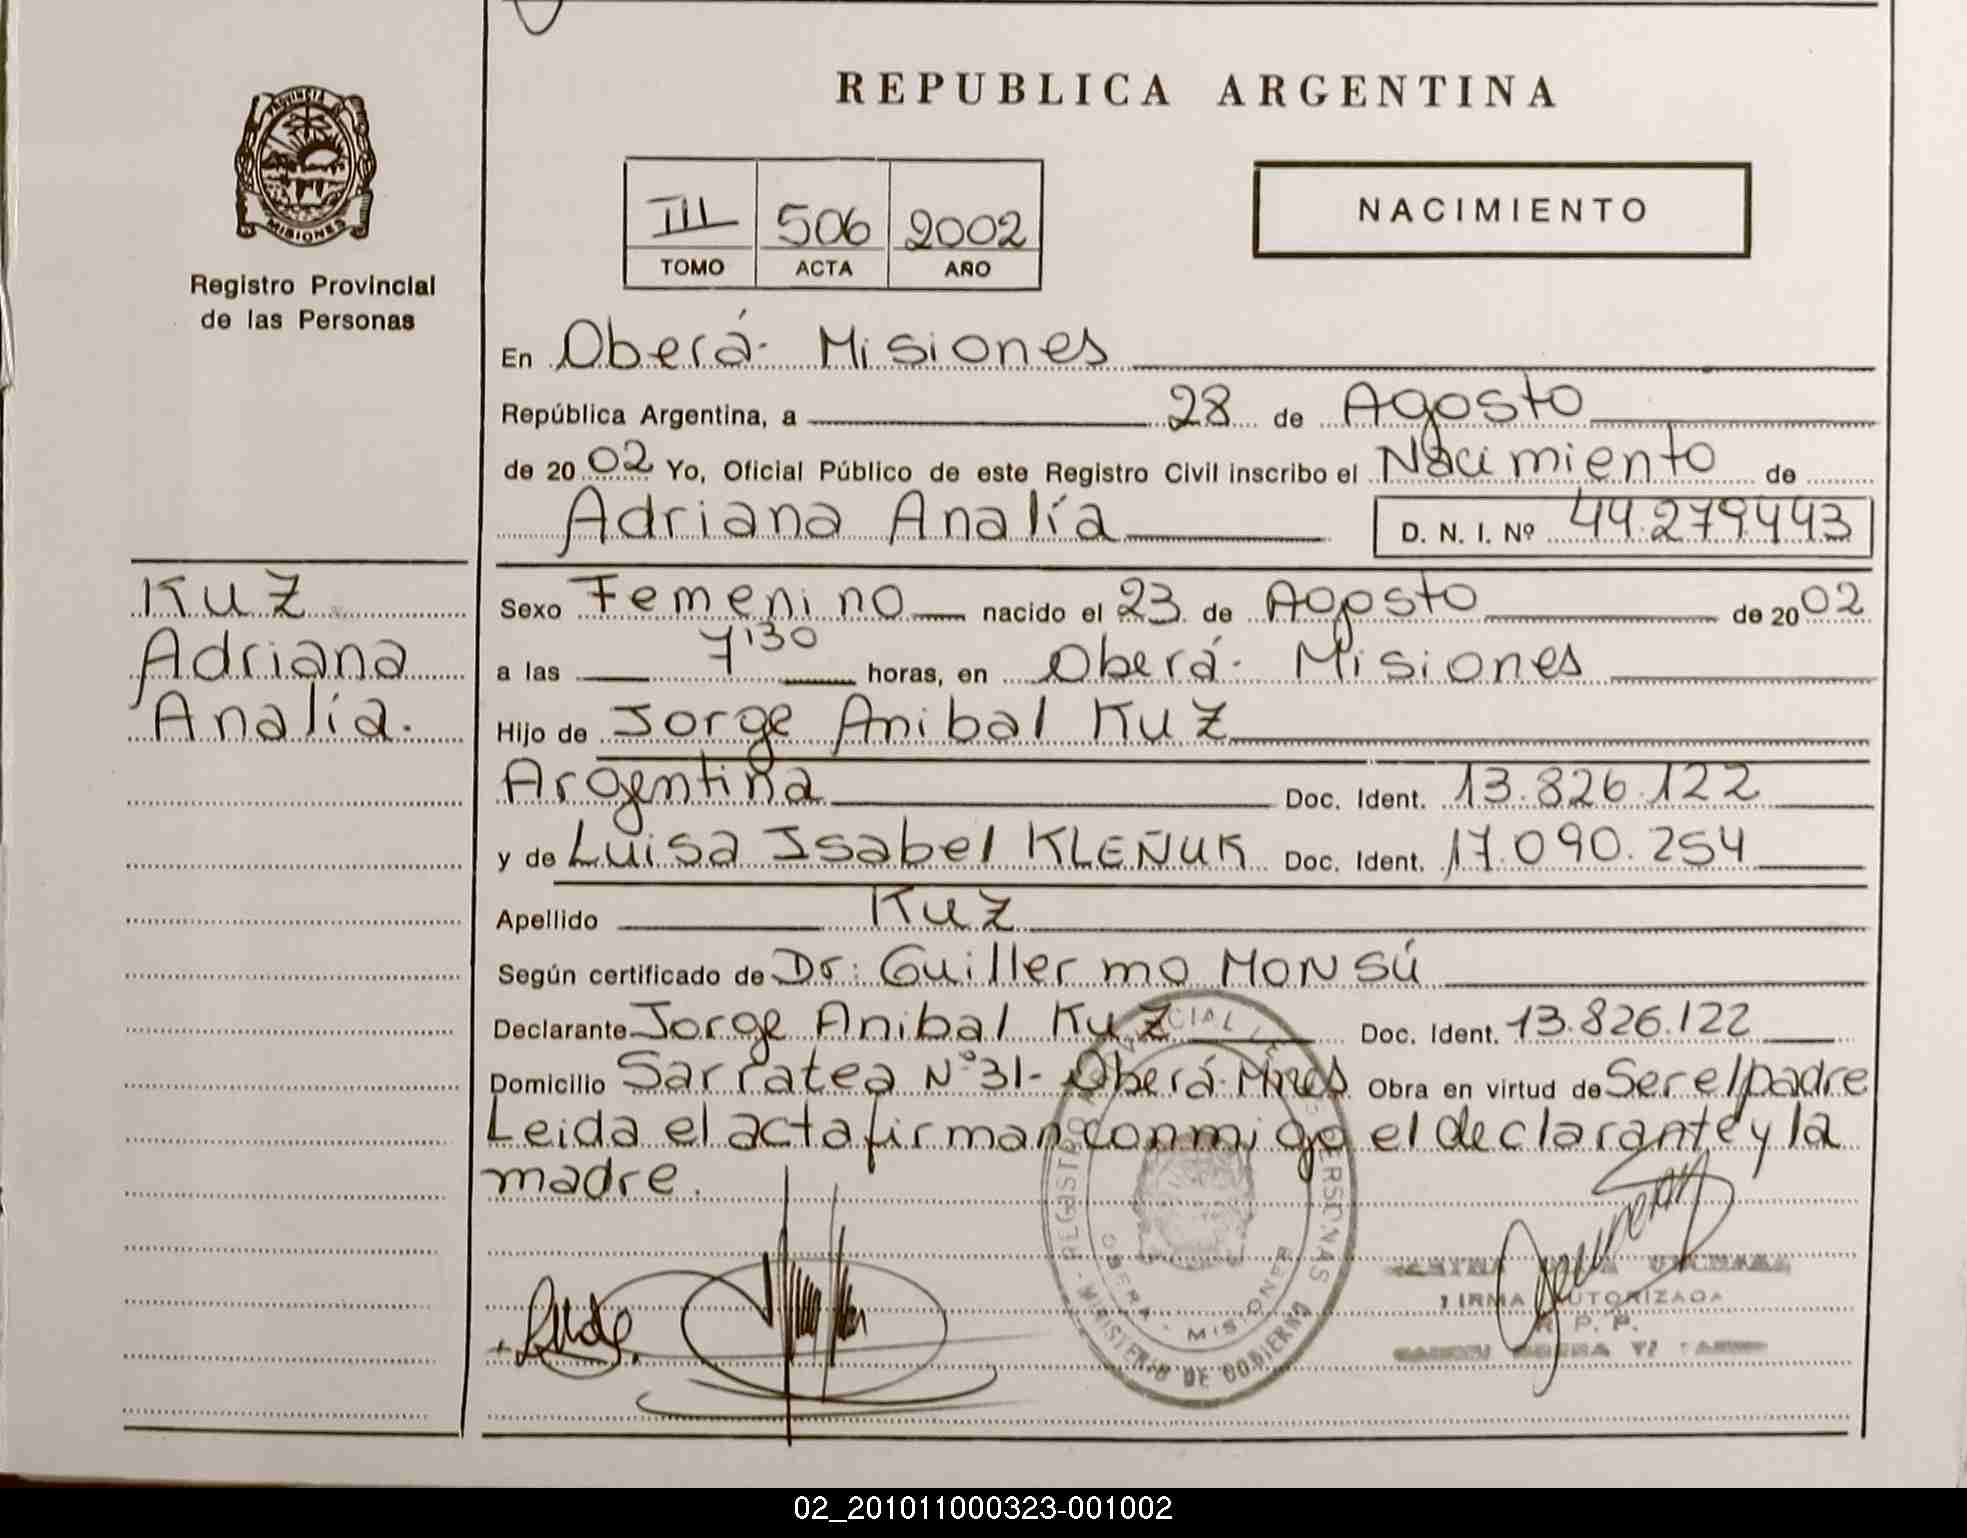 REPUBLICA ARGENTINA
PROVINCIA DE
MISIONES
Registro Provincial
de las Personas
III 506 2002
TOMO ACTA AÑO
NACIMIENTO
En Oberá- Misiones
República Argentina, a 28 de Agosto
de 2002 Yo, Oficial Público de este Registro Civil inscribo el Nacimiento de
Adriana Analía D. N. I. Nº 44.279.443
KUZ
Adriana
Analía.
Sexo Femenino nacido el 23 de Agosto de 2002
a las 7'30 horas, en Oberá- Misiones
Hijo de Jorge Anibal KUZ
Argentina Doc. Ident. 13.826.122
y de Luisa Isabel KLEÑUK Doc. Ident. 17.090.254
Apellido KUZ
Según certificado de Dr: Guillermo MONSÚ
Declarante Jorge Anibal KUZ Doc. Ident. 13.826.122
Domicilio Sarratea N°31- Oberá-Mnes Obra en virtud de Ser el padre
Leida el acta firman conmigo el declarante y la
madre.
OBERA - MISIONES
MINISTERIO DE GOBIERNO
FIRMA AUTORIZADA
R. P. P.
02_201011000323-001002